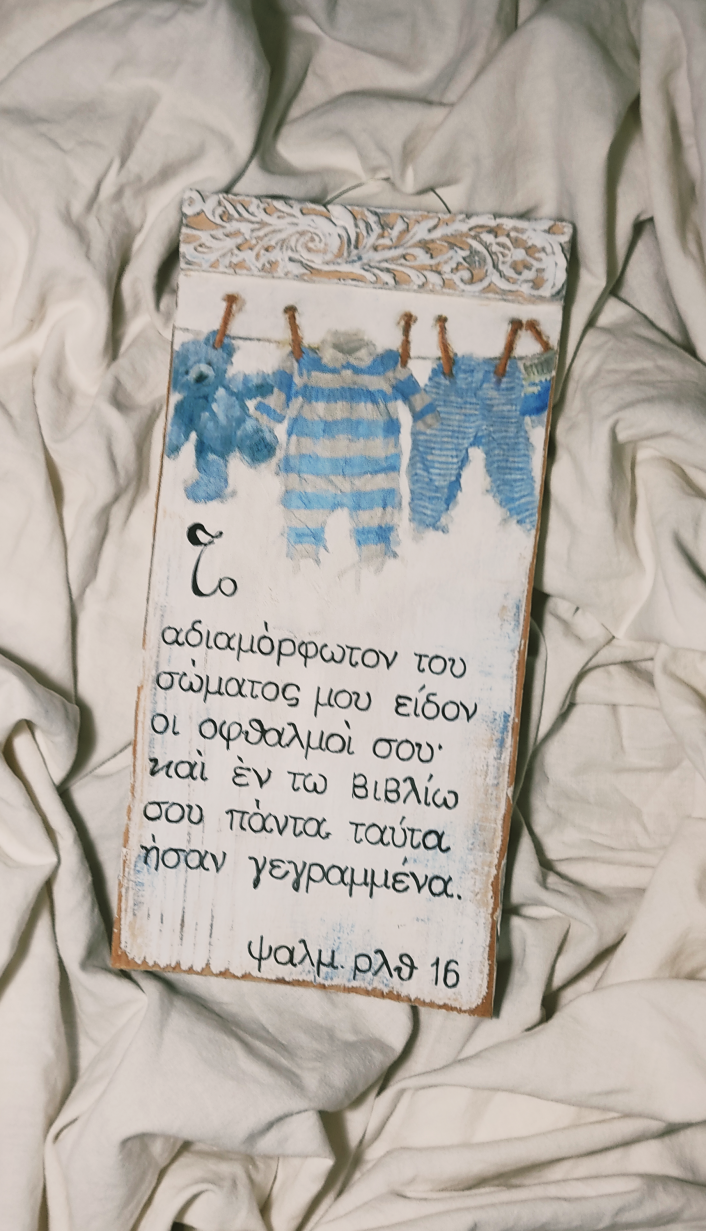 Το
αδιαμὸρφωτον του
σὠματος μου είδον
οι οφθαλμοὶ σου·
καὶ ἐν τω βιβλίω
σου πὰντα ταύτα
ἠσαν γεγραμμένα.
ψαλμ. ρλθ 16